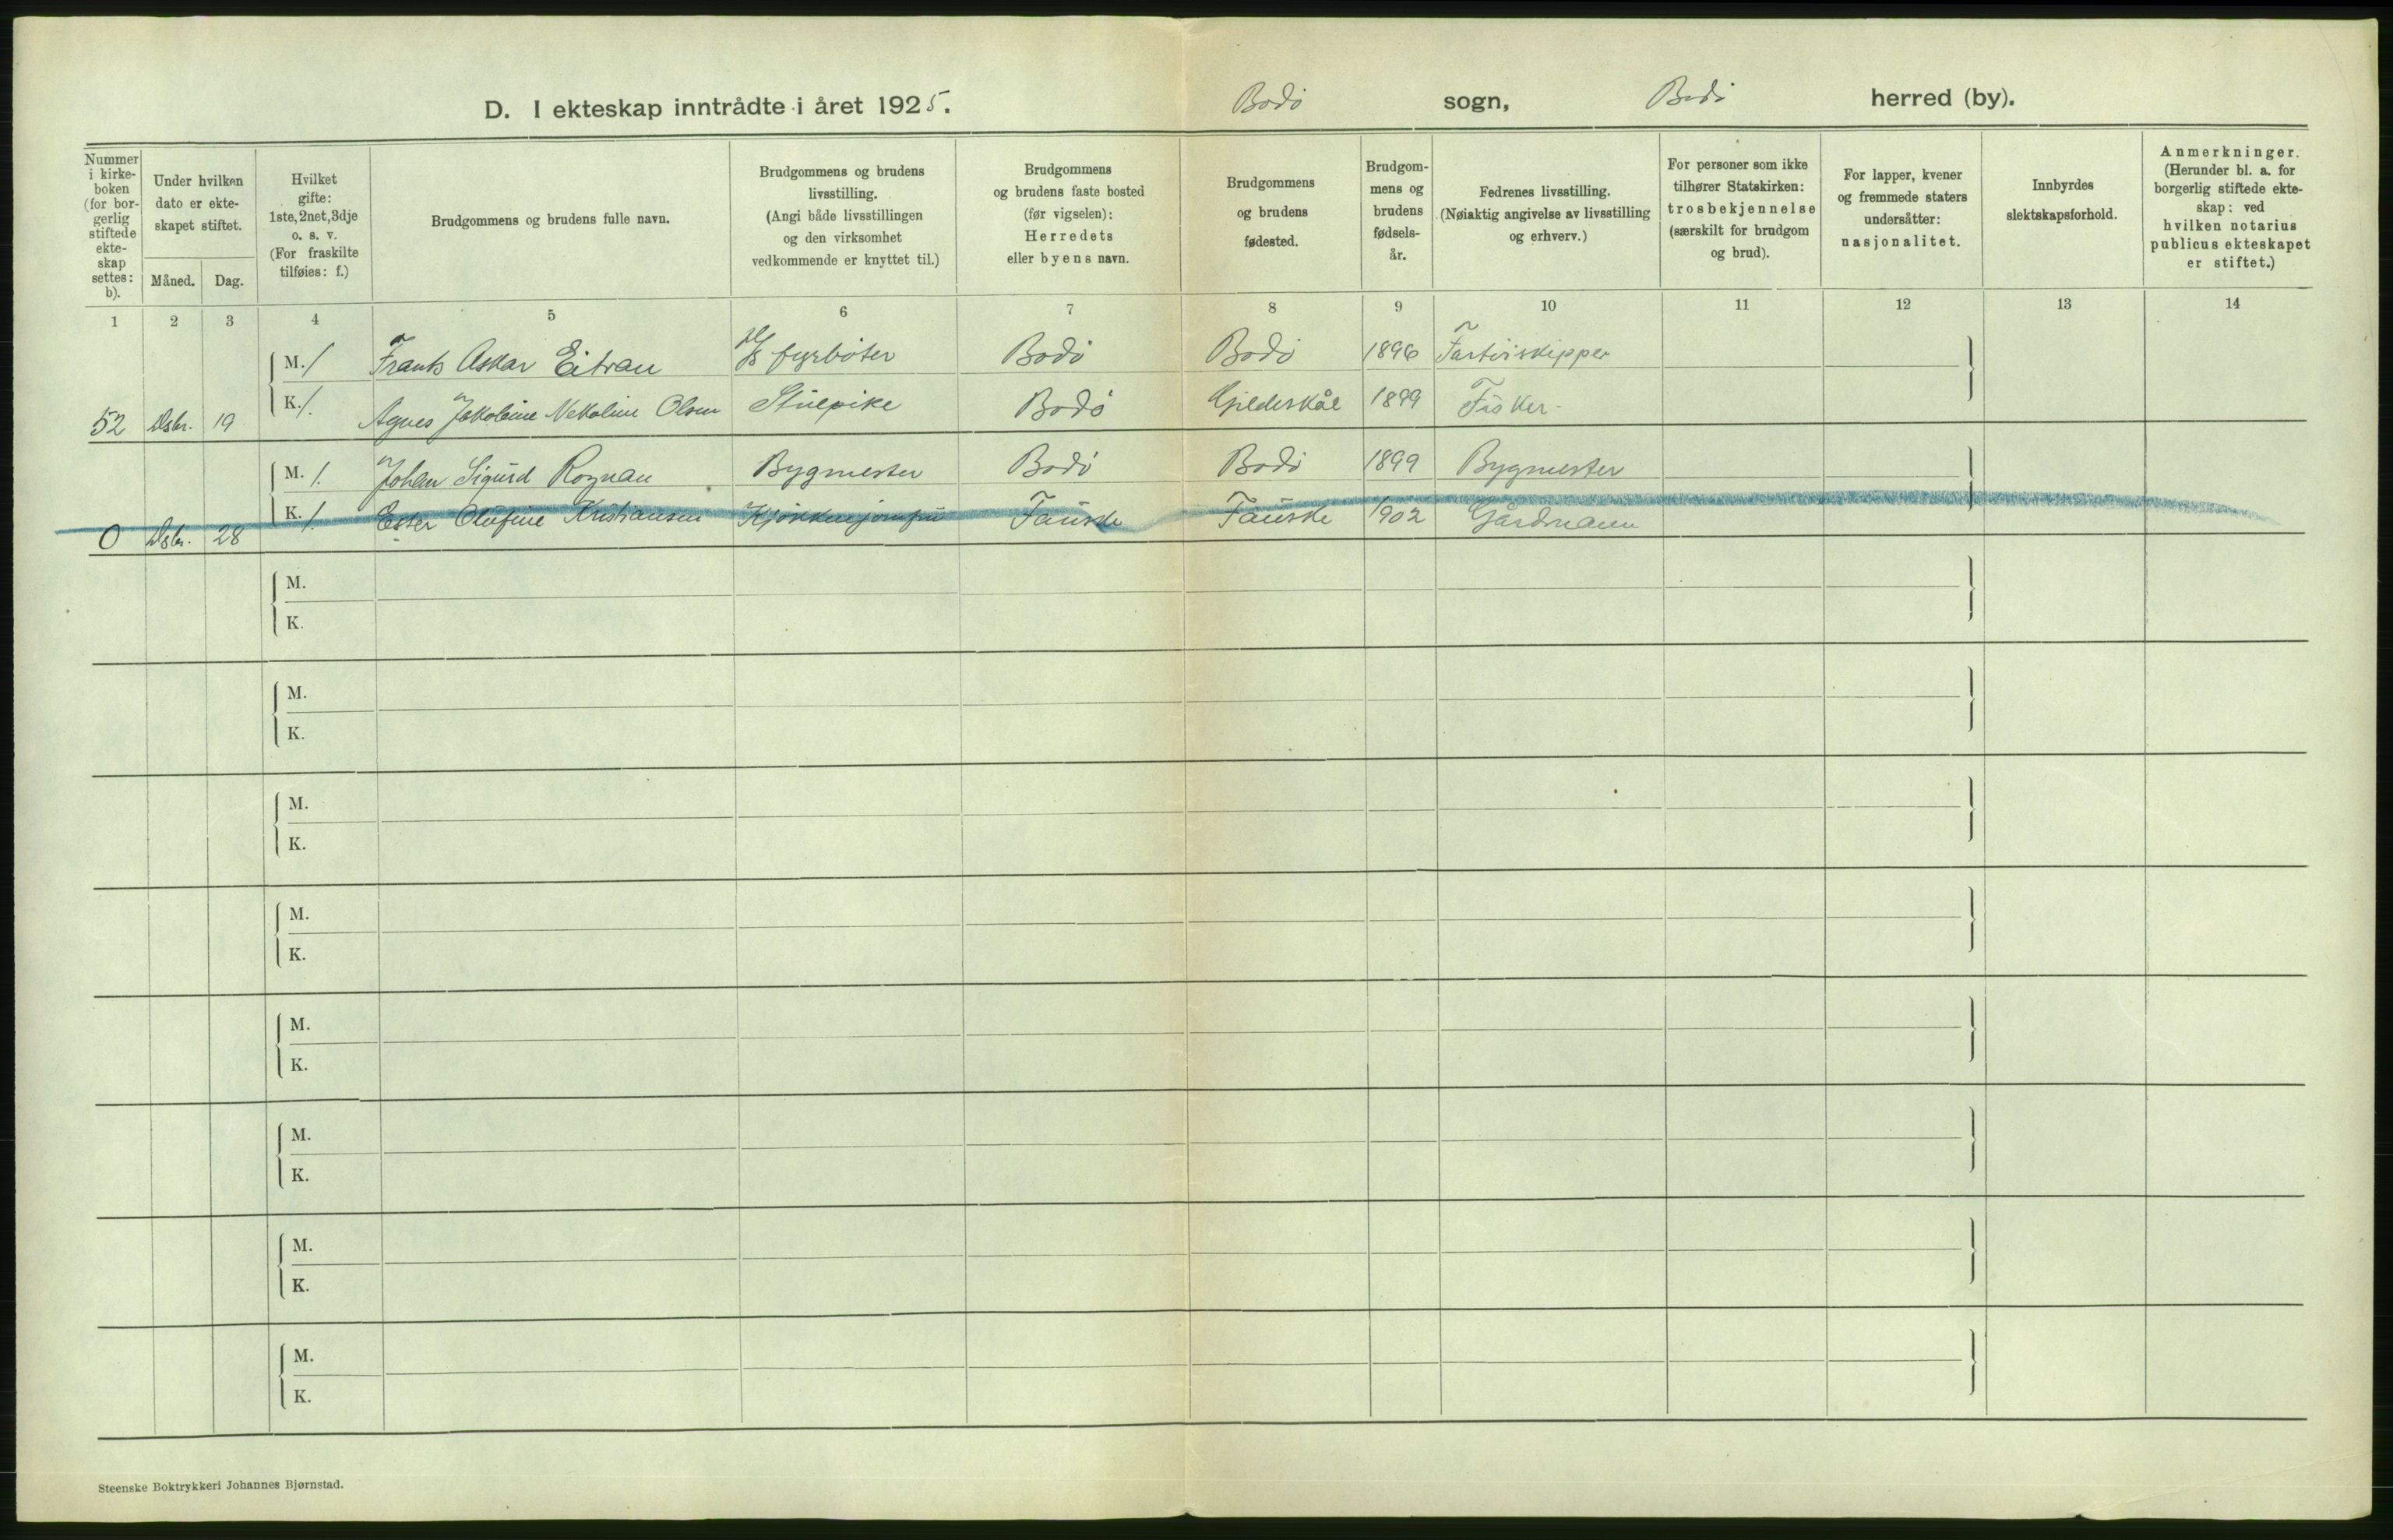 D. I ekteskap inntrådte i året 1925. Bodö sogn, Bodö herred (by).
Nummer i kirke-boken (for bor-gerlig stiftede ekte-skap settes: b).
Under hvilken dato er ekte-skapet stiftet.
Måned. Dag.
Hvilket gifte: 1ste, 2net, 3dje o. s. v. (For fraskilte tilføies: f.)
Brudgommens og brudens fulle navn.
Brudgommens og brudens livsstilling. (Angi både livsstillingen og den virksomhet vedkommende er knyttet til.)
Brudgommens og brudens faste bosted (før vigselen): Herredets eller byens navn.
Brudgommens og brudens fødested.
Brudgom-mens og brudens fødsels-år.
Fedrenes livsstilling. (Nøiaktig angivelse av livsstilling og erhverv.)
For personer som ikke tilhører Statskirken: trosbekjennelse (særskilt for brudgom og brud).
For lapper, kvener og fremmede staters undersåtter: nasjonalitet.
Innbyrdes slektskapsforhold.
Anmerkninger. (Herunder bl. a. for borgerlig stiftede ekte-skap: ved hvilken notarius publicus ekteskapet er stiftet.)
1 2 3 4 5 6 7 8 9 10 11 12 13 14
M. / Frants Oskar Eitran fyrböter Bodö Bodö 1896 Fartöiskipper
52 Dsbr. 19 K. /. Agnes Jakobine Nekoline Olsen Stuepike Bodö Gildeskål 1899 Fisker-
M. /. Johan Sigurd Rognan Bygmester Bodö Bodö 1899 Bygmester
0 Dsbr. 28 K. /. Ester Olufine Kristiansen Kjökkenjomfru Fauske Fauske 1902 Gårdmann
M.
K.
M.
K.
M.
K.
M.
K.
M.
K.
M.
K.
M.
K.
M.
K.
Steenske Boktrykkeri Johannes Bjørnstad.